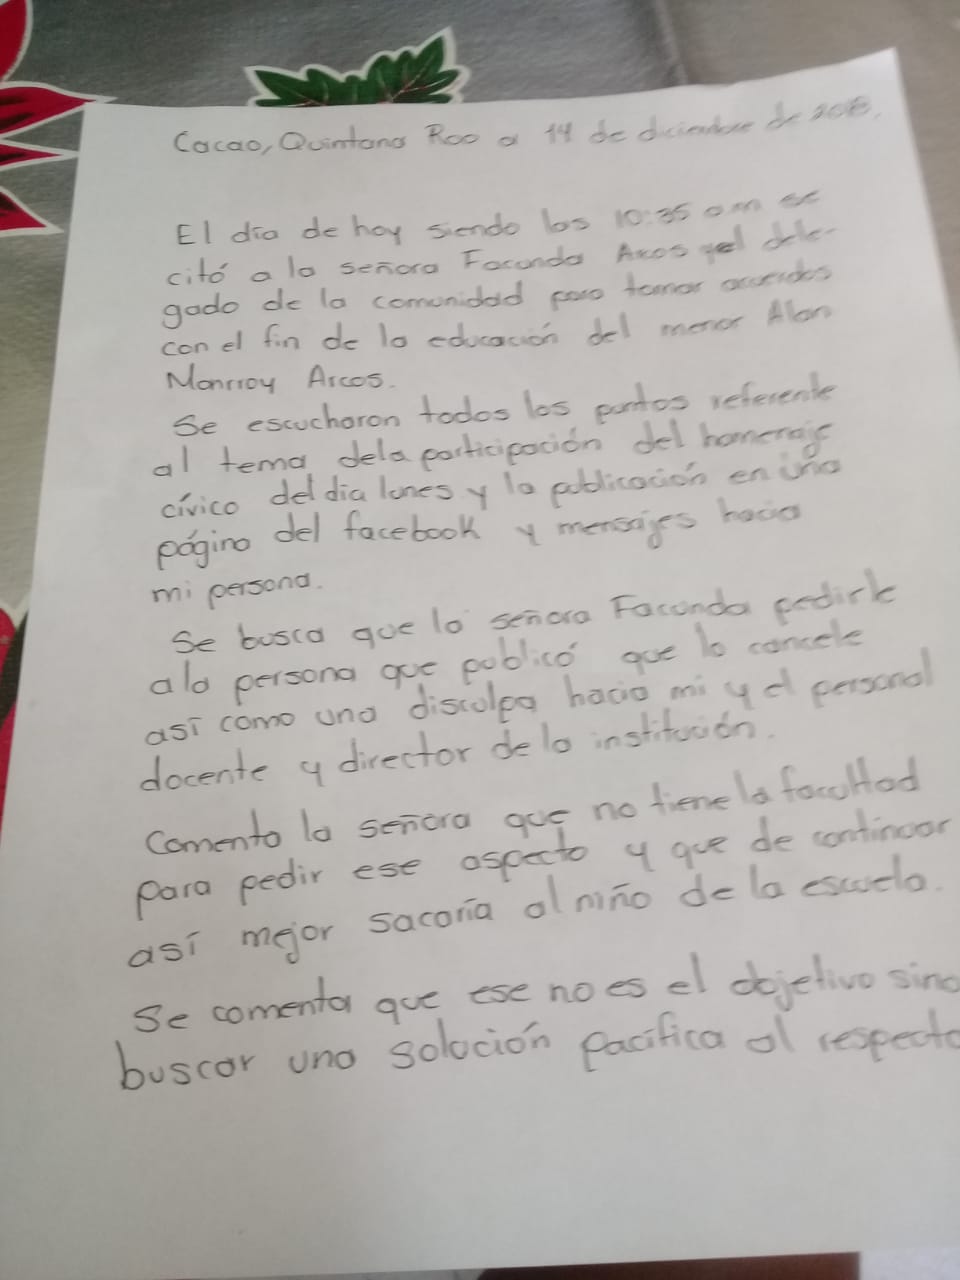 Cacao, Quintana Roo a 14 de diciembre de
El día de hoy siendo las 10:35 am se
citó a la señora Facunda Arcos y el dele-
gado de la comunidad para tomar acuerdos
con el fin de la educación del menor Alan
Monrroy Arcos.
Se escucharon todos los puntos referente
al tema dela participación del homenaje
cívico del dia lunes y la publicación en una
página del facebook y mensajes hacia
mi persona.
Se busca que la señora Facunda pedirle
ala persona que publicó que lo cancele
así como una disculpa hacia mi y el personal
docente y director de la institución.
Comento la señora que no tiene la facultad
para pedir ese aspecto y que de continuar
así mejor sacaría al niño de la escuela.
Se comenta que ese no es el objetivo sino
buscar una solución pacífica al respecto